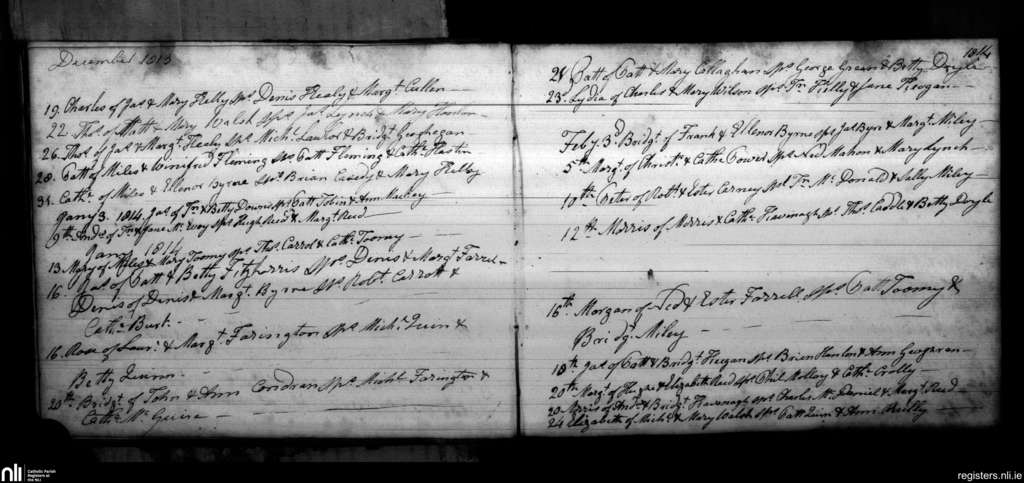 December 1813
19. Charles of Jas & Mary Kelly Sps Denis Healy & Margt Cullen
22. Thos of Matt & Mary Walsh Sps Jas Lynch & Mary Hanlon
26. Thos of Jas & Margt Healy Sps Michl Lawlor & Bridgt Geoghegan
28. Patt of Miles & Winefred Fleming Sps Patt Fleming & Cathe
31. Cathe of Miles & Ellenor Byrne Sps Brian Casey & Mary Kelly
Jany 3. 1814. Jas of & Betty Downs Sps Patt Tobin & Ann
9th of & Jane Mc Evoy Sps Hugh Reed & Margt Reed
Jany 1814
13. Mary of Miles & Mary Toomy Sps Thos Carrol & Cathe Toomy
16. Jas of Patt & Betty Fitzharris Sps Denis & Margt Farrel
Denis of Denis & Margt Byrne Sps Robt Carroll &
Cathe Burk.
16. Rose of & Margt Farington Sps Michl Quin &
Betty Quinn
20th Bridgt of John & Ann Condran Sps Michl Farington &
Cathe Mc Guire
1814
21. Patt of Patt & Mary Callaghan Sps George Green & Betty Doyle
23. Lydia of Charles & Mary Wilson Sps & Jane Keogan
Feby 3d Bridgt of Frank & Ellenor Byrne Sps Jas Byrn & Margt Miley
5th Margt of Christr & Cathe Power Sps Ned Mahon & Mary Lynch
10th Peter of Robt & Ester Cerney Sps Mc Donald & Sally Miley
12th Morris of Morris & Cathe Kavanagh Sps Thos Caddle & Betty Doyle
16th Morgan of Ned & Ester Farrell Sps Patt Toomy &
Bridgt Miley
18th Jas of Patt & Bridgt Keegan Sps Brien Hanlon & Ann
20th Margt of Hugh & Elizabeth Reed Sps Phil Molloy & Cathe
20 Morris of & Bridgt Kavenagh Sps Charles Mc Daniel & Margt Reed
24 Elizabeth of Michl & Mary Walsh Sps Patt Quin & Ann Reilly
nli
Catholic Parish
Registers at
the NLI
registers.nli.ie